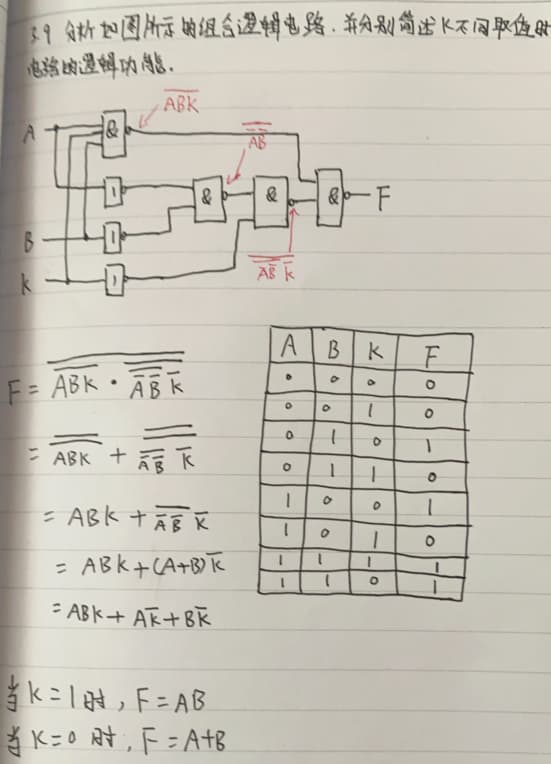 3.9 分析如图所示的组合逻辑电路.并分别简述K不同取值时
电路的逻辑功能.
A & $\overline{ABK}$
$\overline{\overline{A}\,\overline{B}}$
1 & & & F
B 1
$\overline{\overline{\overline{A}\,\overline{B}}\,\overline{K}}$
K 1
F = $\overline{\overline{ABK} \cdot \overline{\overline{\overline{A}\,\overline{B}}\,\overline{K}}}$
= $\overline{\overline{ABK}} + \overline{\overline{\overline{\overline{A}\,\overline{B}}\,\overline{K}}}$
= ABK + $\overline{\overline{A}\,\overline{B}}\,\overline{K}$
= ABK + (A+B)$\overline{K}$
= ABK + A$\overline{K}$ + B$\overline{K}$
A B K F
0 0 0 0
0 0 1 0
0 1 0 1
0 1 1 0
1 0 0 1
1 0 1 0
1 1 1 1
1 1 0 1
当K=1时, F=AB
当K=0时, F=A+B